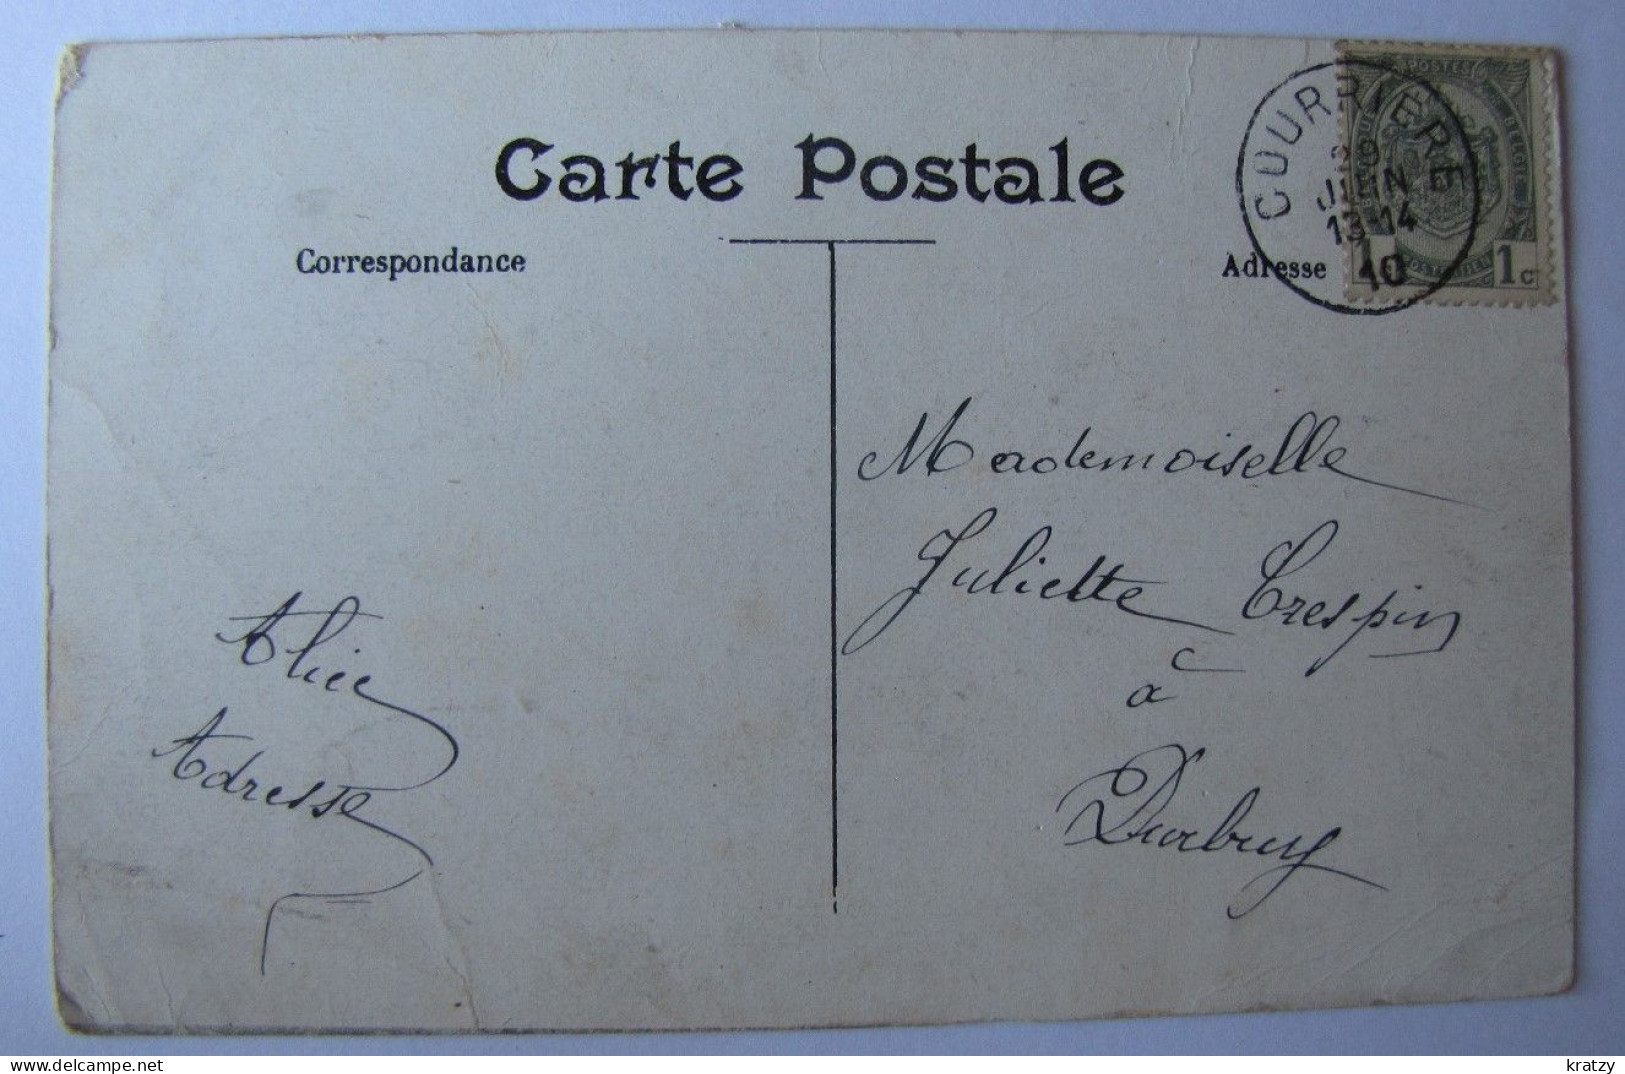 Carte Postale
Correspondance
Adresse
COURRIÈRE
JUIN
13-14
10
POSTES
BELGIQUE
BELGIE
1c
Mademoiselle
Juliette Crespin
à
Durbuy
Adresse
kratzy